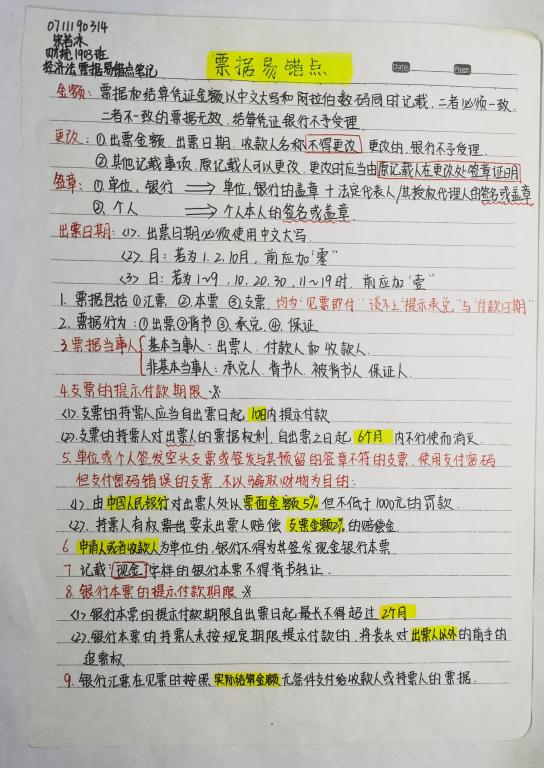 0711190314
宋若冰
财统1903班
经济法票据易错点笔记
票据易错点
Date
Page
金额：票据和结算凭证金额以中文大写和阿拉伯数码同时记载，二者必须一致.
二者不一致的票据无效，结算凭证银行不予受理.
更改：①出票金额、出票日期、收款人名称不得更改 更改的，银行不予受理.
②其他记载事项，原记载人可以更改，更改时应当由原记载人在更改处签章证明
签章：①、单位、银行 ⟹ 单位、银行的盖章 + 法定代表人/其授权代理人的签名或盖章
②、个人 ⟹ 个人本人的签名或盖章.
出票日期：<1>. 出票日期必须使用中文大写.
<2> 月：若为1. 2. 10月，前应加"零"
<3> 日：若为1~9，10. 20. 30，11~19时，前应加"壹"
1. 票据包括①汇票 ②本票 ③支票. 均为"见票即付" 谈不上"提示承兑"与"付款日期"
2. 票据行为：①出票②背书③、承兑④、保证
3. 票据当事人{基本当事人：出票人. 付款人和收款人.
非基本当事人：承兑人. 背书人. 被背书人 保证人.
4. 支票的提示付款期限 ※
<1>. 支票的持票人应当自出票日起 10日内提示付款
<2>. 支票的持票人对出票人的票据权利，自出票之日起 6个月 内不行使而消灭.
5. 单位或个人签发空头支票或签发与其预留的签章不符的支票，使用支付密码
但支付密码错误的支票，不以骗取财物为目的：
<1>. 由中国人民银行对出票人处以票面金额5% 但不低于1000元的罚款.
<2>. 持票人有权要求出票人赔偿 支票金额2%的赔偿金.
6 申请人或者收款人为单位的，银行不得为其签发现金银行本票
7. 记载"现金"字样的银行本票不得背书转让.
8. 银行本票的提示付款期限 ※
<1> 银行本票的提示付款期限自出票日起最长不得超过 2个月
<2>. 银行本票的持票人未按规定期限提示付款的，将丧失对出票人以外的前手的
追索权
9. 银行汇票在见票时按照实际结算金额无条件支付给收款人或持票人的票据.